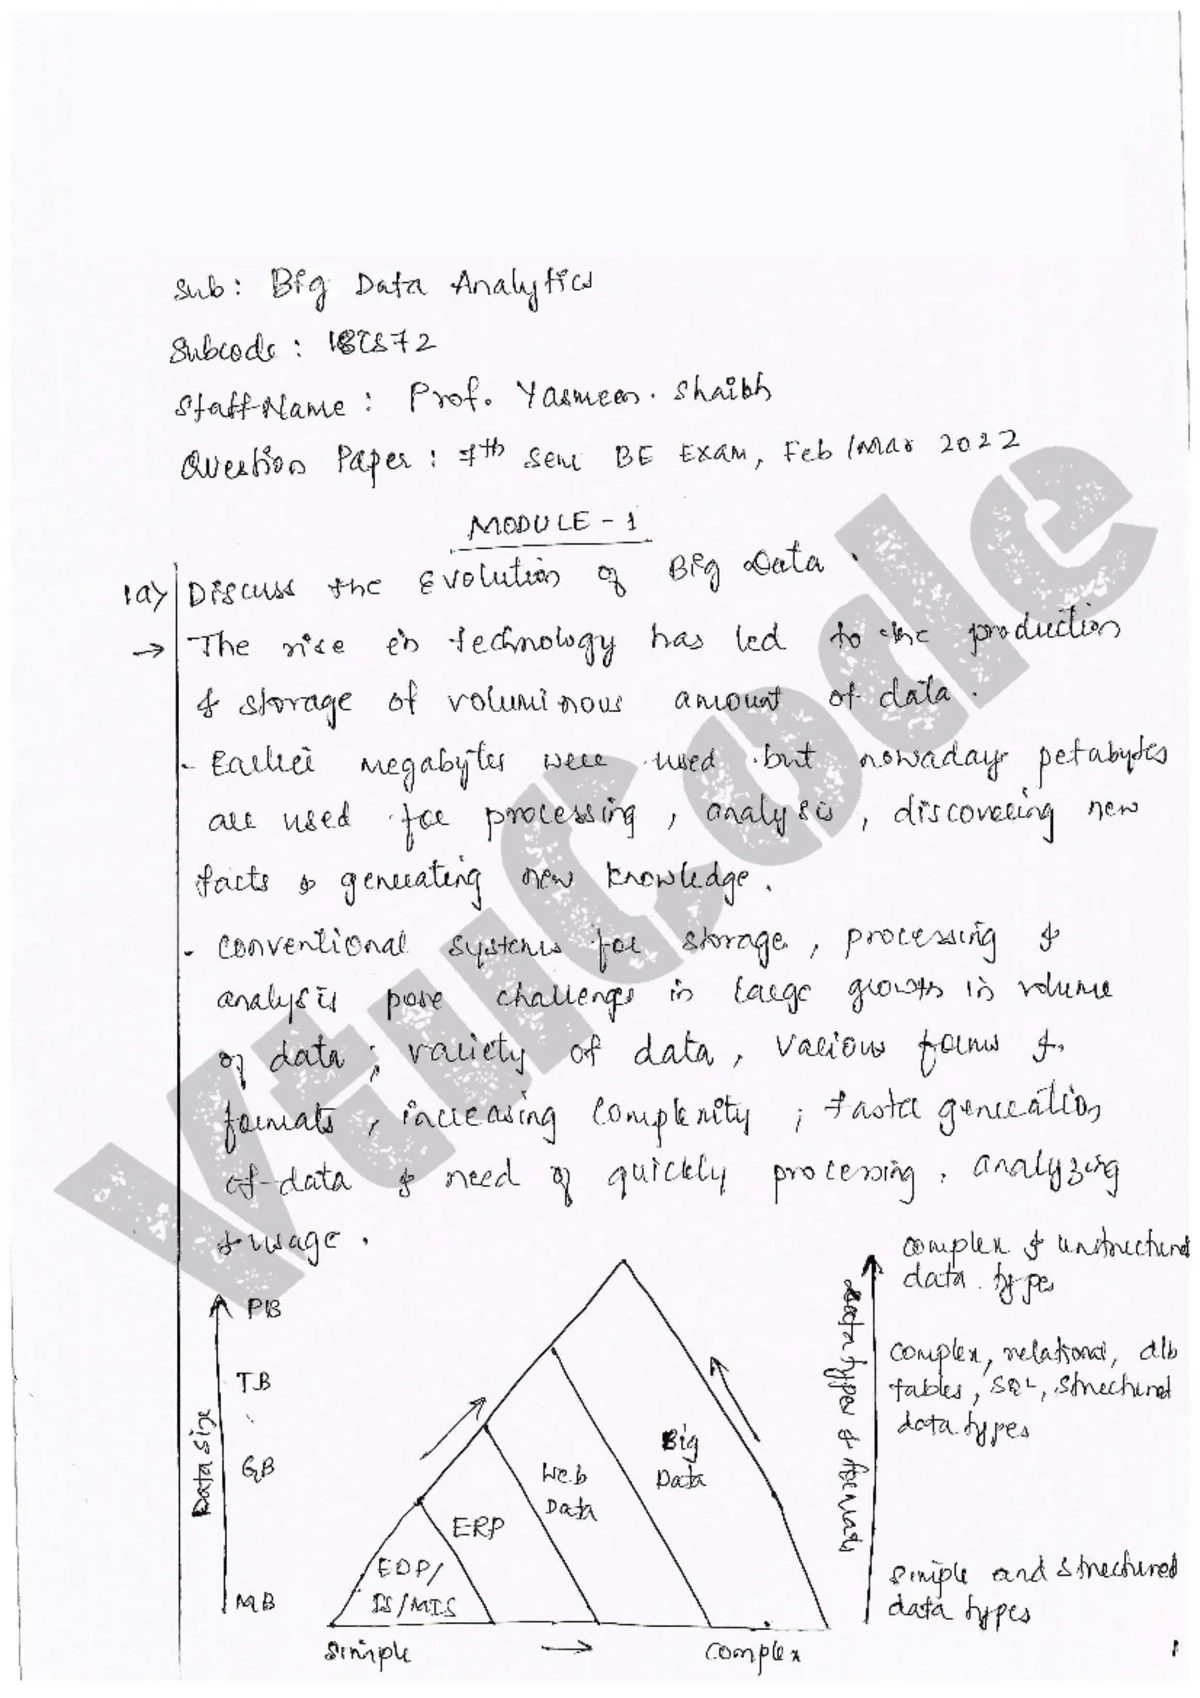 Sub: Big Data Analytics
Subcode: 18CS72
Staff Name: Prof. Yasmeen. Shaikh
Question Paper: 7th Sem BE Exam, Feb/Mar 2022
MODULE - 1
1a) Discuss the Evolution of Big Data.
→ The rise in technology has led to the production
& storage of voluminous amount of data.
- Earlier megabytes were used but nowadays petabytes
are used for processing, analysis, discovering new
facts & generating new knowledge.
- Conventional systems for storage, processing &
analysis pose challenges in large growth in volume
of data; variety of data, various forms &
formats, increasing complexity; faster generation
of data & need of quickly processing, analyzing
& usage.
Data Size
PB
TB
GB
MB
EDP/
IS/MIS
ERP
Web
Data
Big
Data
Simple → Complex
Data types & formats
complex & unstructured
data types
complex, relational, db
tables, SQL, structured
data types
simple and structured
data types
1
VtuCode